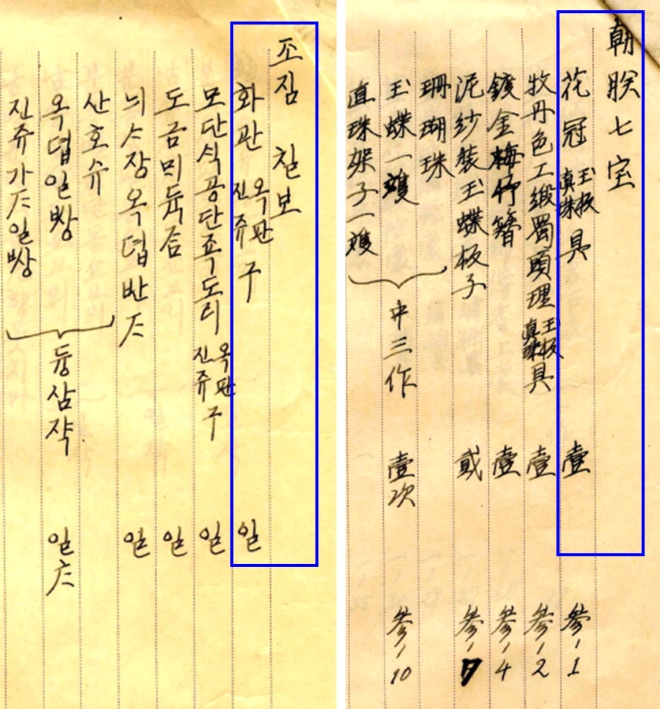 조짐 칠보
화관 옥판 진쥬 구 일
모단식공단죡도리 옥판 진쥬 구 일
도금ᄆᆡ듁줌 일
늬사장옥뎝반ᄌᆞ 일
산호슈
옥뎝일쌍
진쥬가ᄌᆞ일쌍
듕삼쟉 일ᄎᆞ
朝朕七宝
花冠 玉板 真珠 具 壹 参-1
牧丹色工緞蜀頭理 玉板 真珠 具 壹 参-2
鍍金梅竹簪 壹 参-4
泥紗装玉蝶板子 貳 参-7
珊瑚珠
玉蝶一雙
真珠架子一雙
中三作 壹次 参-10